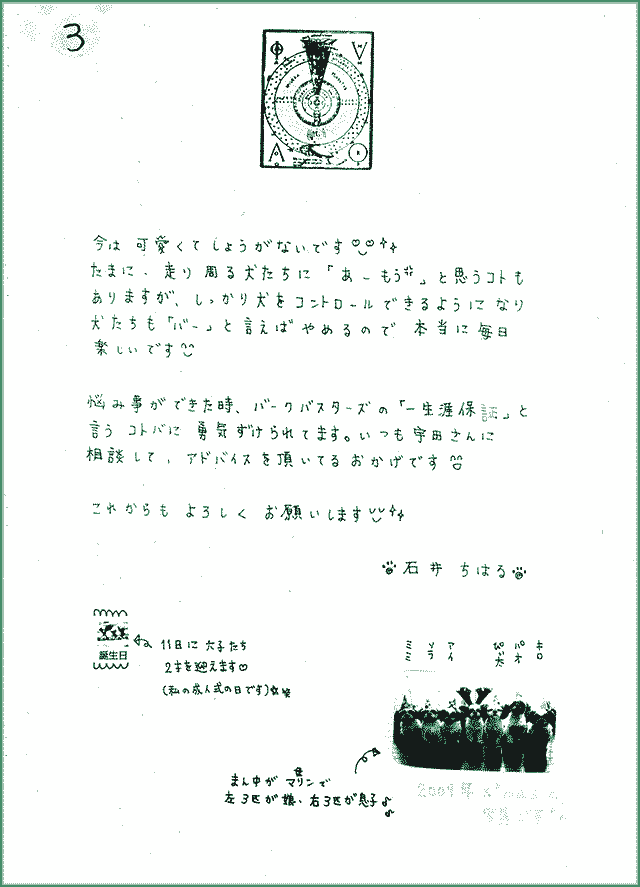 3
今は 可愛くて しょうがないです
たまに、走り 周る 犬たちに 「あーもう」と思うコトも
ありますが、しっかり犬を コントロールできるように なり
犬たちも「バー」と言えば やめるので 本当に毎日
楽しいです
悩み事ができた時、バークバスターズの「一生涯保証」と
言う コトバに 勇気づけられてます。いつも宇田さんに
相談して、アドバイスを頂いてる おかげです
これからも よろしく お願いします
石井 ちはる
誕生日
11日に 六子たち
2才を迎えます♡
(私の成人式の日です)笑
キロ
パオ
ぴ太
アイ
ソラ
ミミ
まん中が 母マリンで
左3匹が娘、右3匹が息子♪
2009年 X'mas
写真です